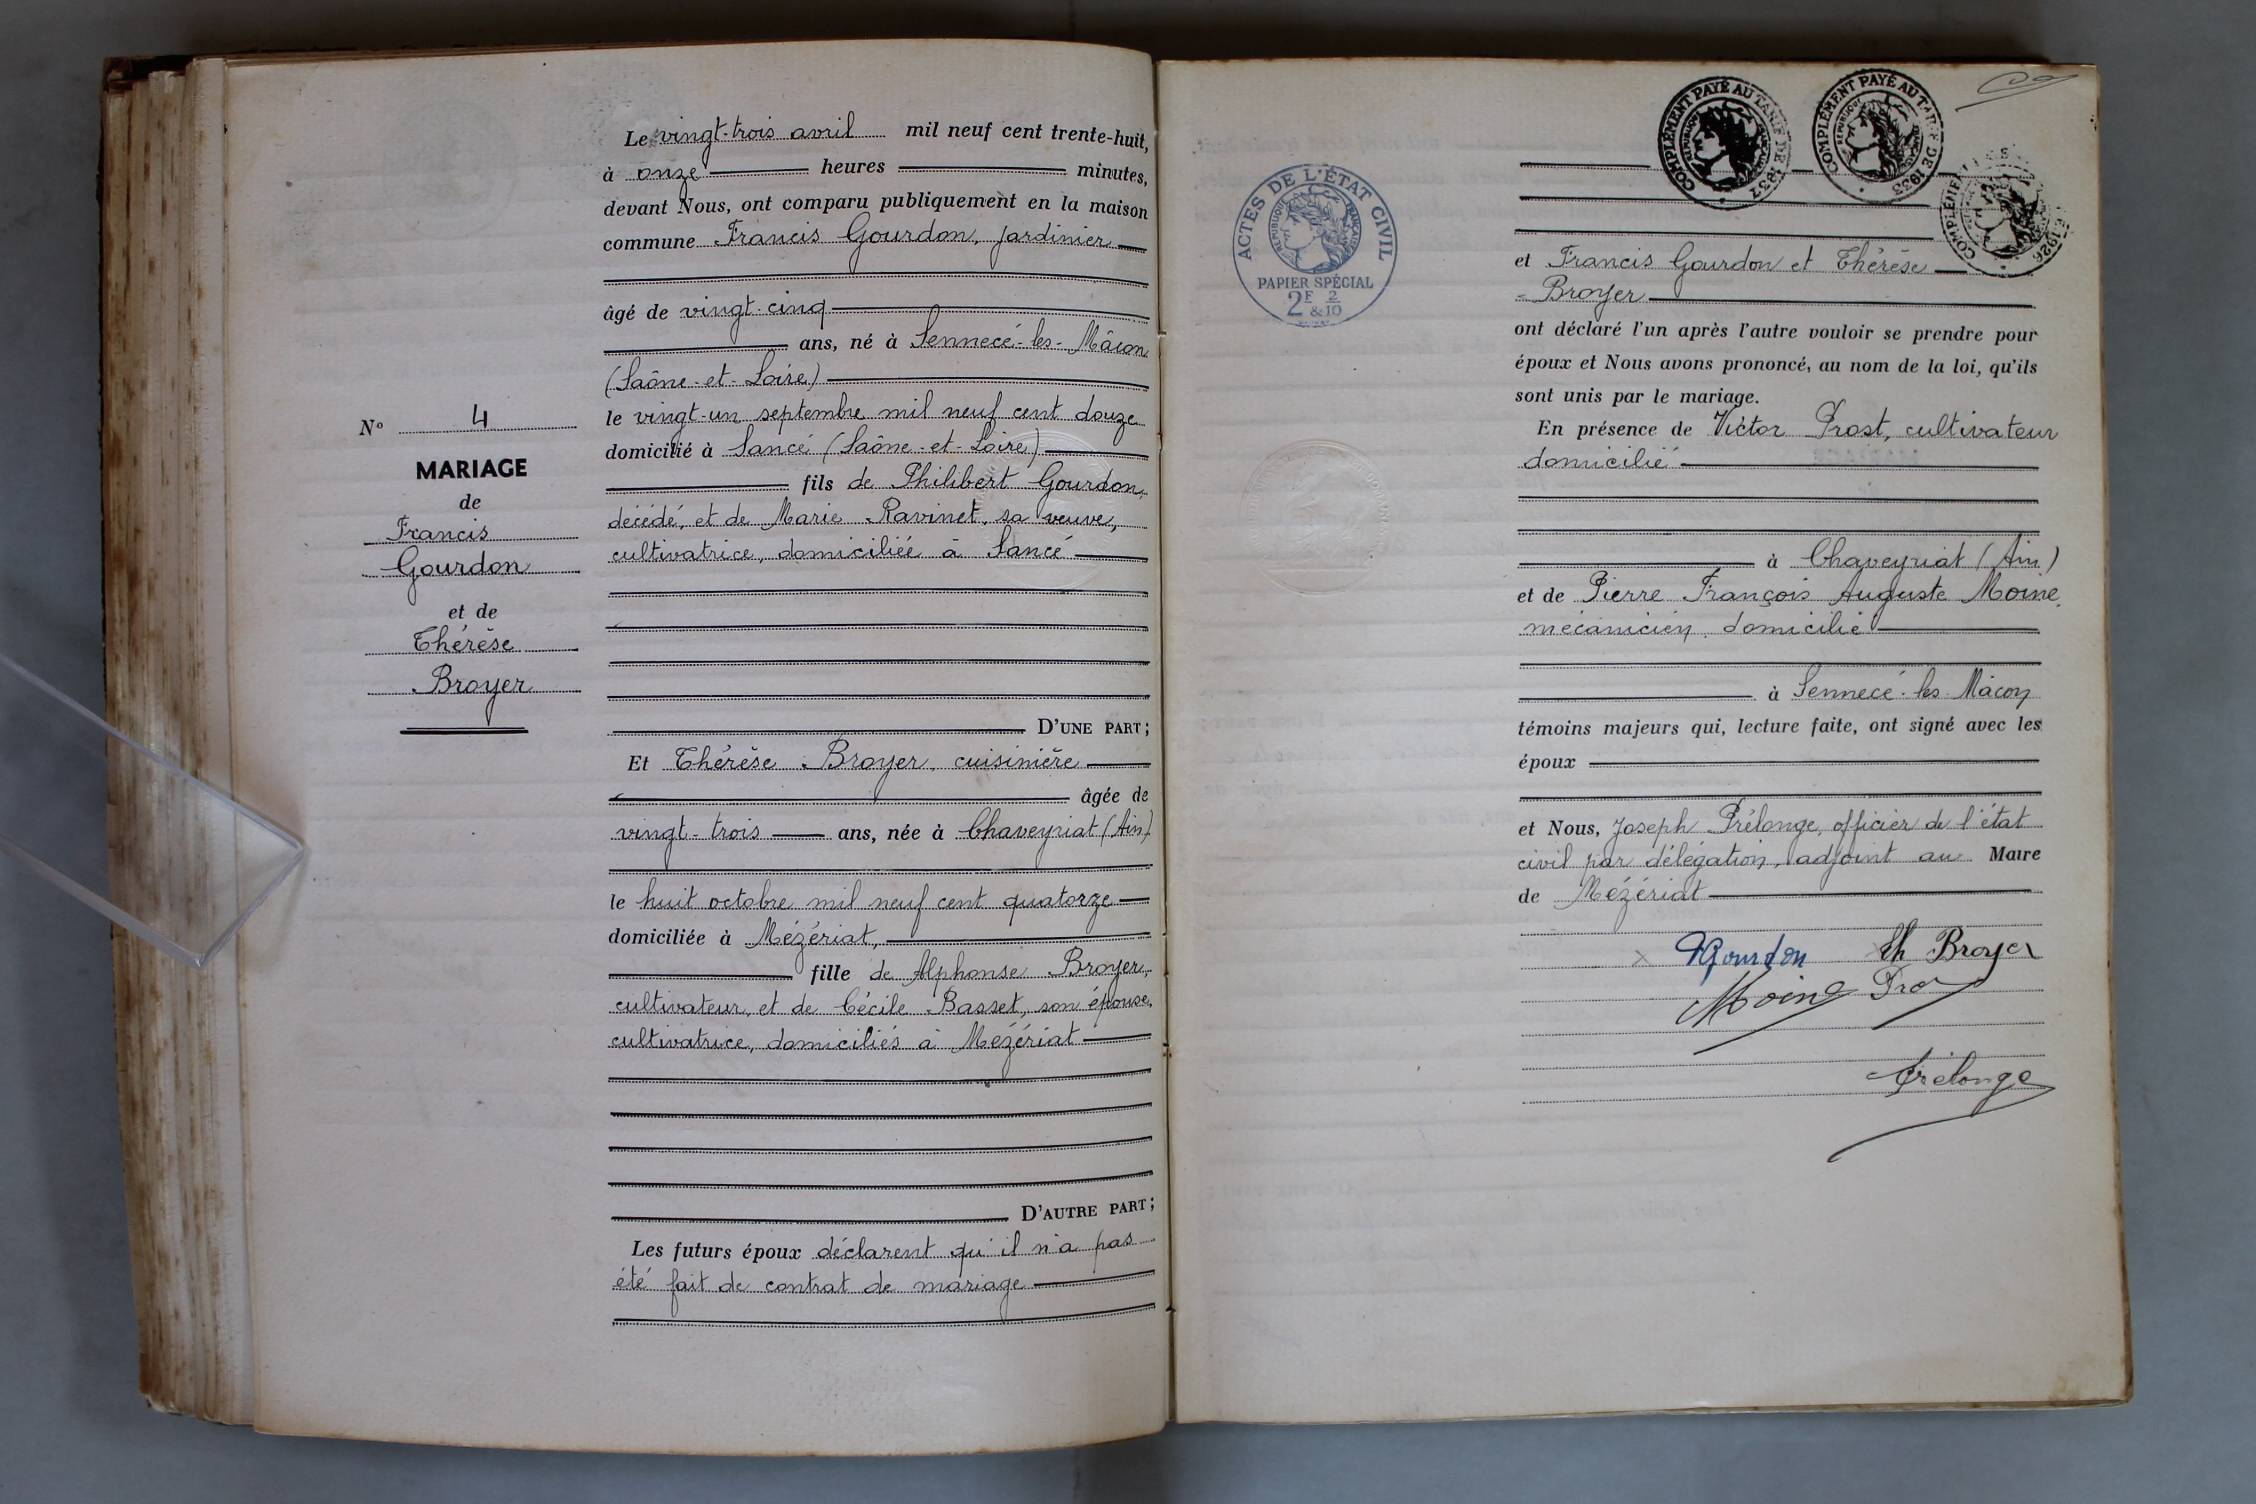 N° 4
MARIAGE
de
Francis
Gourdon
et de
Thérèse
Broyer
Le vingt-trois avril mil neuf cent trente-huit,
à onze heures minutes,
devant Nous, ont comparu publiquement en la maison
commune Francis Gourdon, jardinier
âgé de vingt-cinq
ans, né à Sennecé-les-Mâcon
(Saône-et-Loire)
le vingt-un septembre mil neuf cent douze
domicilié à Sancé (Saône-et-Loire)
fils de Philibert Gourdon,
décédé, et de Marie Ravinet, sa veuve,
cultivatrice, domiciliée à Sancé
D'UNE PART;
Et Thérèse Broyer, cuisinière
âgée de
vingt-trois ans, née à Chaveyriat (Ain)
le huit octobre mil neuf cent quatorze
domiciliée à Mézériat,
fille de Alphonse Broyer,
cultivateur, et de Cécile Basset, son épouse,
cultivatrice, domiciliés à Mézériat
D'AUTRE PART;
Les futurs époux déclarent qu'il n'a pas
été fait de contrat de mariage
ACTES DE L'ÉTAT CIVIL
RÉPUBLIQUE FRANÇAISE
PAPIER SPÉCIAL
2F & 2/10
COMPLÉMENT PAYÉ AU TARIF DE 1937
RÉPUBLIQUE FRANÇAISE
COMPLÉMENT PAYÉ AU TARIF DE 1935
RÉPUBLIQUE FRANÇAISE
et Francis Gourdon et Thérèse
Broyer
ont déclaré l'un après l'autre vouloir se prendre pour
époux et Nous avons prononcé, au nom de la loi, qu'ils
sont unis par le mariage.
En présence de Victor Prost, cultivateur
domicilié
à Chaveyriat (Ain)
et de Pierre François Auguste Moine,
mécanicien, domicilié
à Sennecé-les-Mâcon
témoins majeurs qui, lecture faite, ont signé avec les
époux
et Nous, Joseph Prélonge, officier de l'état
civil par délégation, adjoint au Maire
de Mézériat
Gourdon Th Broyer
Moine
Prélonge